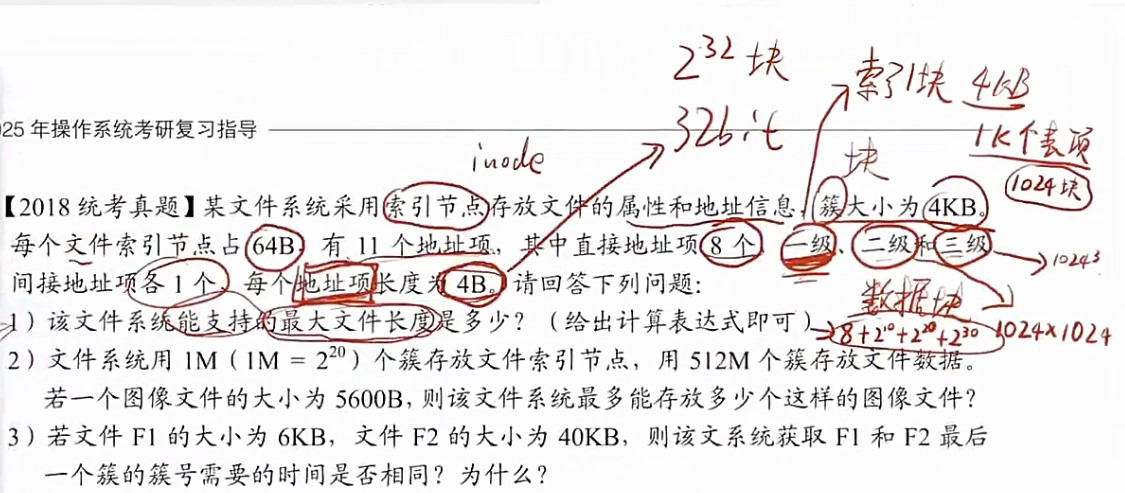 2³² 块
索引块 4KB
025 年操作系统考研复习指导
32bit
1K个表项
inode
块
1024块
【2018 统考真题】某文件系统采用索引节点存放文件的属性和地址信息，簇大小为 4KB。
每个文件索引节点占 64B，有 11 个地址项，其中直接地址项 8 个，一级、二级和三级
1024³
间接地址项各 1 个，每个地址项长度为 4B。请回答下列问题：
数据块
1）该文件系统能支持的最大文件长度是多少？（给出计算表达式即可）
8+2¹⁰+2²⁰+2³⁰
1024×1024
2）文件系统用 1M（1M = 2²⁰）个簇存放文件索引节点，用 512M 个簇存放文件数据。
若一个图像文件的大小为 5600B，则该文件系统最多能存放多少个这样的图像文件？
3）若文件 F1 的大小为 6KB，文件 F2 的大小为 40KB，则该文系统获取 F1 和 F2 最后
一个簇的簇号需要的时间是否相同？为什么？